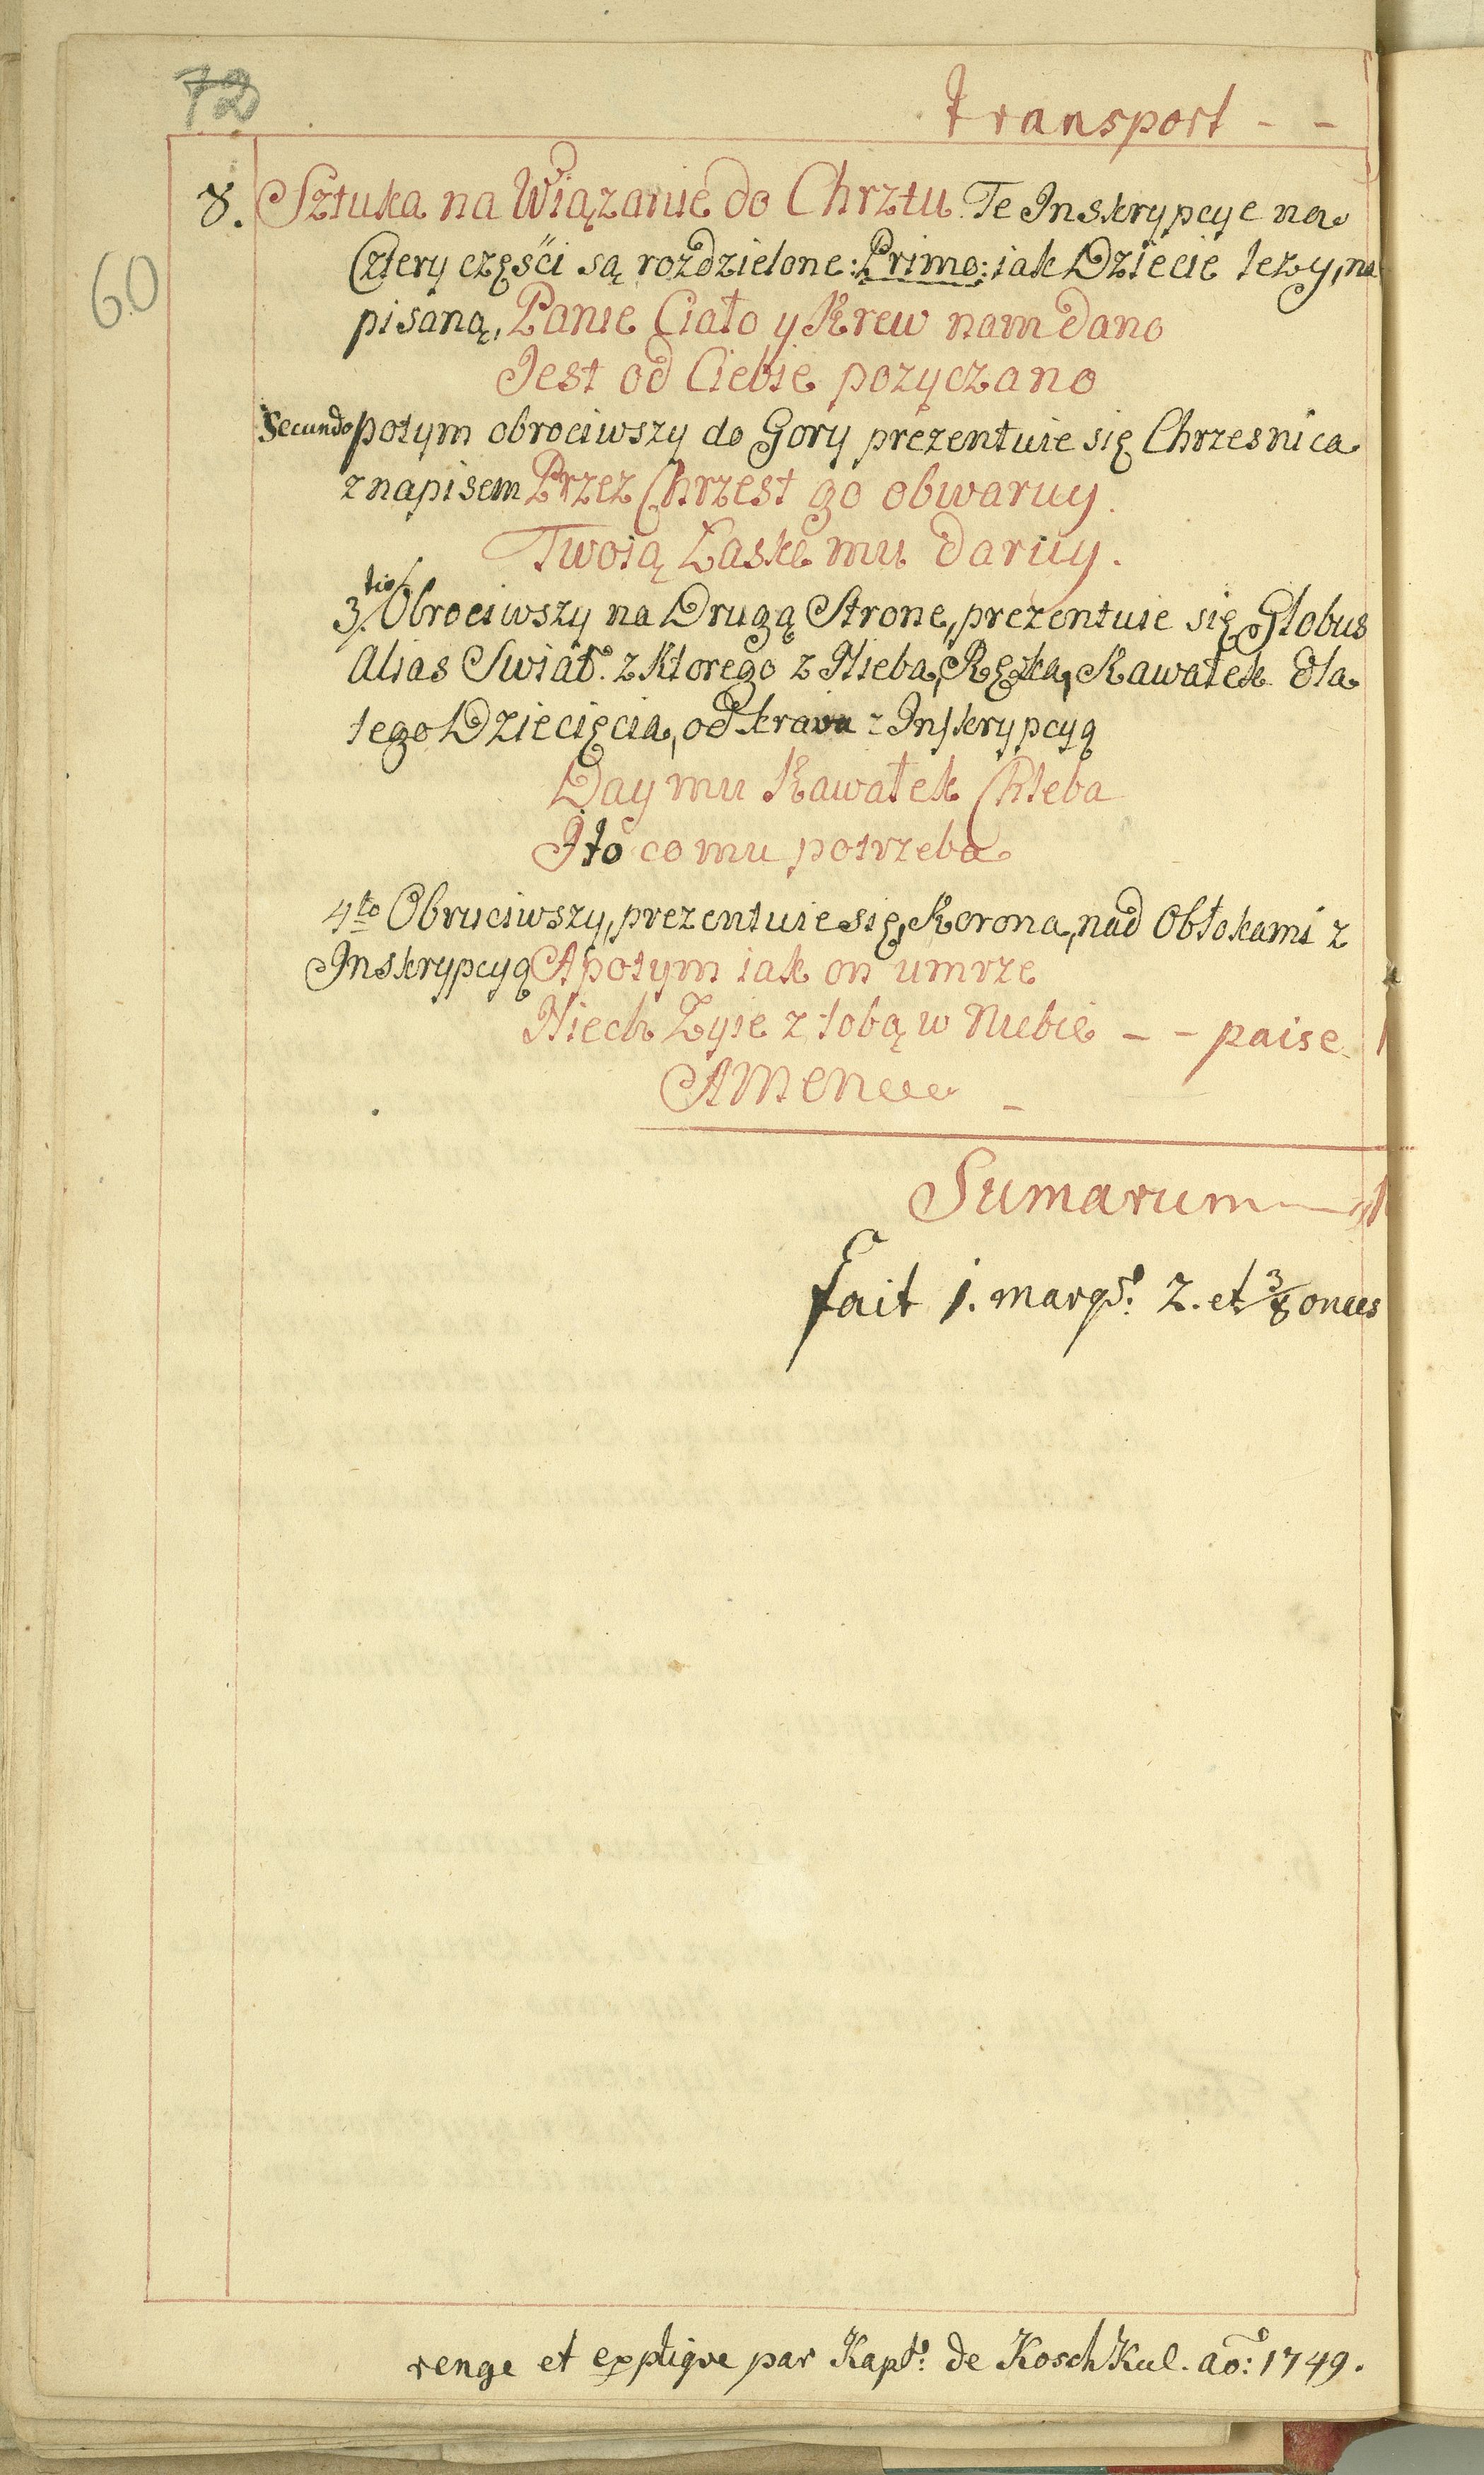 72
transport - -
8. Sztuka na Wiązanie do Chrztu. Te Inskrypcye na
60
Cztery części są rozdzielone: Primo: iak Dziecie leży, na
pisaną, Panie Ciało y Krew nam dano
Jest od Ciebie pozyczano
Secundo potym obrociwszy do Gory prezentuie się Chrzesnica
z napisem Przez Chrzest go obwaruy.
Twoią Łaske mu daruy.
3tio. Obrociwszy na Drugą Strone, prezentuie się Globus
alias Swiat. z ktorego z Nieba, Ręzka, Kawałek dla
tego Dziecięcia, od krava z Inskrypcyą
Day mu Kawałek Chleba
I to co mu potrzeba
4to Obruciwszy, prezentuie się, Korona, nad Obłokami z
Inskrypcyą A potym iak on umrze
Niech Zyie z tobą w Niebie - - paise
AMEN
Sumarum
fait 1. marqs: 2. et 3/8 onces
renge et explique par Kapt: de KoschKul. ao: 1749.